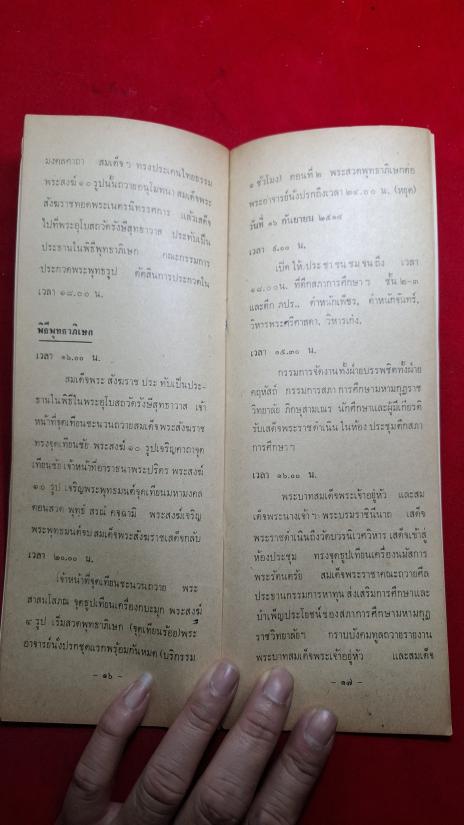 มงคลคาถา สมเด็จฯ ทรงประเคนไทยธรรม
พระสงฆ์ ๑๐ รูปนั้นถวายอนุโมทนา สมเด็จพระ
สังฆราชทอดพระเนตรนิทรรศการ แล้วเสด็จ
ไปที่พระอุโบสถวัดรังษีสุทธาวาส ประทับเป็น
ประธานในพิธีพุทธาภิเษก คณะกรรมการ
ประกวดพระพุทธรูป ตัดสินการประกวดใน
เวลา ๑๘.๐๐ น.
พิธีพุทธาภิเษก
เวลา ๑๖.๐๐ น.
สมเด็จพระสังฆราช ประทับเป็นประ-
ธานในพิธีในพระอุโบสถวัดรังษีสุทธาวาส เจ้า
หน้าที่จุดเทียนชะนวนถวายสมเด็จพระสังฆราช
ทรงจุดเทียนชัย พระสงฆ์ ๑๐ รูปเจริญคาถาจุด
เทียนชัย เจ้าหน้าที่อาราธนาพระปริตร พระสงฆ์
๑๐ รูป เจริญพระพุทธมนต์จุดเทียนมหามงคล
ตอนสวด พุทธํ สรณํ คจฺฉามิ พระสงฆ์เจริญ
พระพุทธมนต์จบ สมเด็จพระสังฆราชเสด็จกลับ
เวลา ๒๐.๐๐ น.
เจ้าหน้าที่จุดเทียนชะนวนถวาย พระ
สาสนโสภณ จุดธูปเทียนเครื่องกะบะมุก พระสงฆ์
๔ รูป เริ่มสวดพุทธาภิเษก (จุดเทียนร้อย) พระ
อาจารย์นั่งปรกชุดแรกพร้อมกันหมด (บริกรรม
- ๑๖ -
๑ ชั่วโมง) ตอนที่ ๒ พระสวดพุทธาภิเษกต่อ
พระอาจารย์นั่งปรกถึงเวลา ๒๔.๐๐ น. (หยุด)
วันที่ ๑๖ กันยายน ๒๕๑๔
เวลา ๙.๐๐ น.
เปิดให้ประชาชนชมจนถึง เวลา
๑๘.๐๐ น. ที่ตึกสภาการศึกษาฯ ชั้น ๒-๓
และตึก ภปร., ตำหนักเพ็ชร, ตำหนักจันทร์,
วิหารพระศรีศาสดา, วิหารเก๋ง,
เวลา ๑๕.๓๐ น.
กรรมการจัดงานทั้งฝ่ายบรรพชิตทั้งฝ่าย
คฤหัสถ์ กรรมการสภาการศึกษามหามกุฏราช
วิทยาลัย ภิกษุสามเณร นักศึกษาและผู้มีเกียรติ
รับเสด็จพระราชดำเนิน ในห้องประชุมตึกสภา
การศึกษาฯ
เวลา ๑๖.๐๐ น.
พระบาทสมเด็จพระเจ้าอยู่หัว และสม
เด็จพระนางเจ้าฯ พระบรมราชินีนาถ เสด็จ
พระราชดำเนินถึงวัดบวรนิเวศวิหาร เสด็จเข้าสู่
ห้องประชุม ทรงจุดธูปเทียนเครื่องนมัสการ
พระรัตนตรัย สมเด็จพระราชาคณะถวายศีล
ประธานกรรมการหาทุน ส่งเสริมการศึกษาและ
บำเพ็ญประโยชน์ของสภาการศึกษามหามกุฏ
ราชวิทยาลัยฯ กราบบังคมทูลถวายรายงาน
พระบาทสมเด็จพระเจ้าอยู่หัว และสมเด็จ
- ๑๗ -